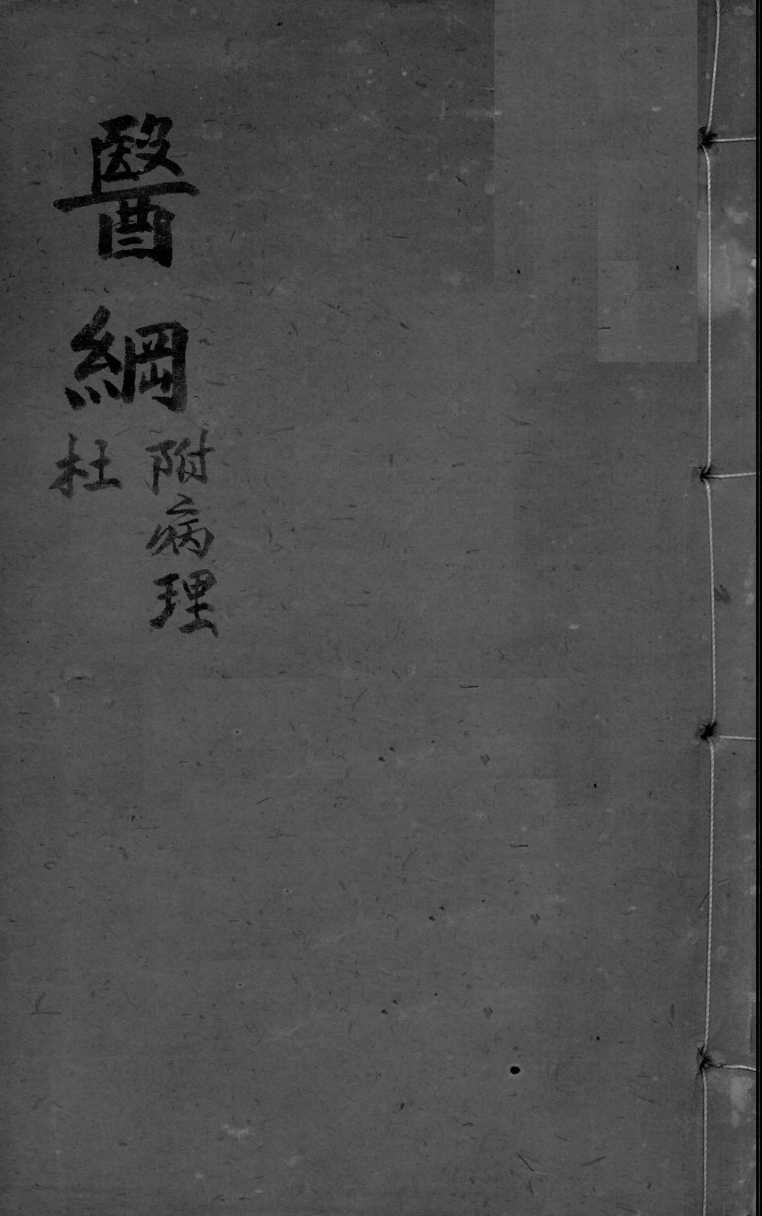 醫綱
附病理
杜